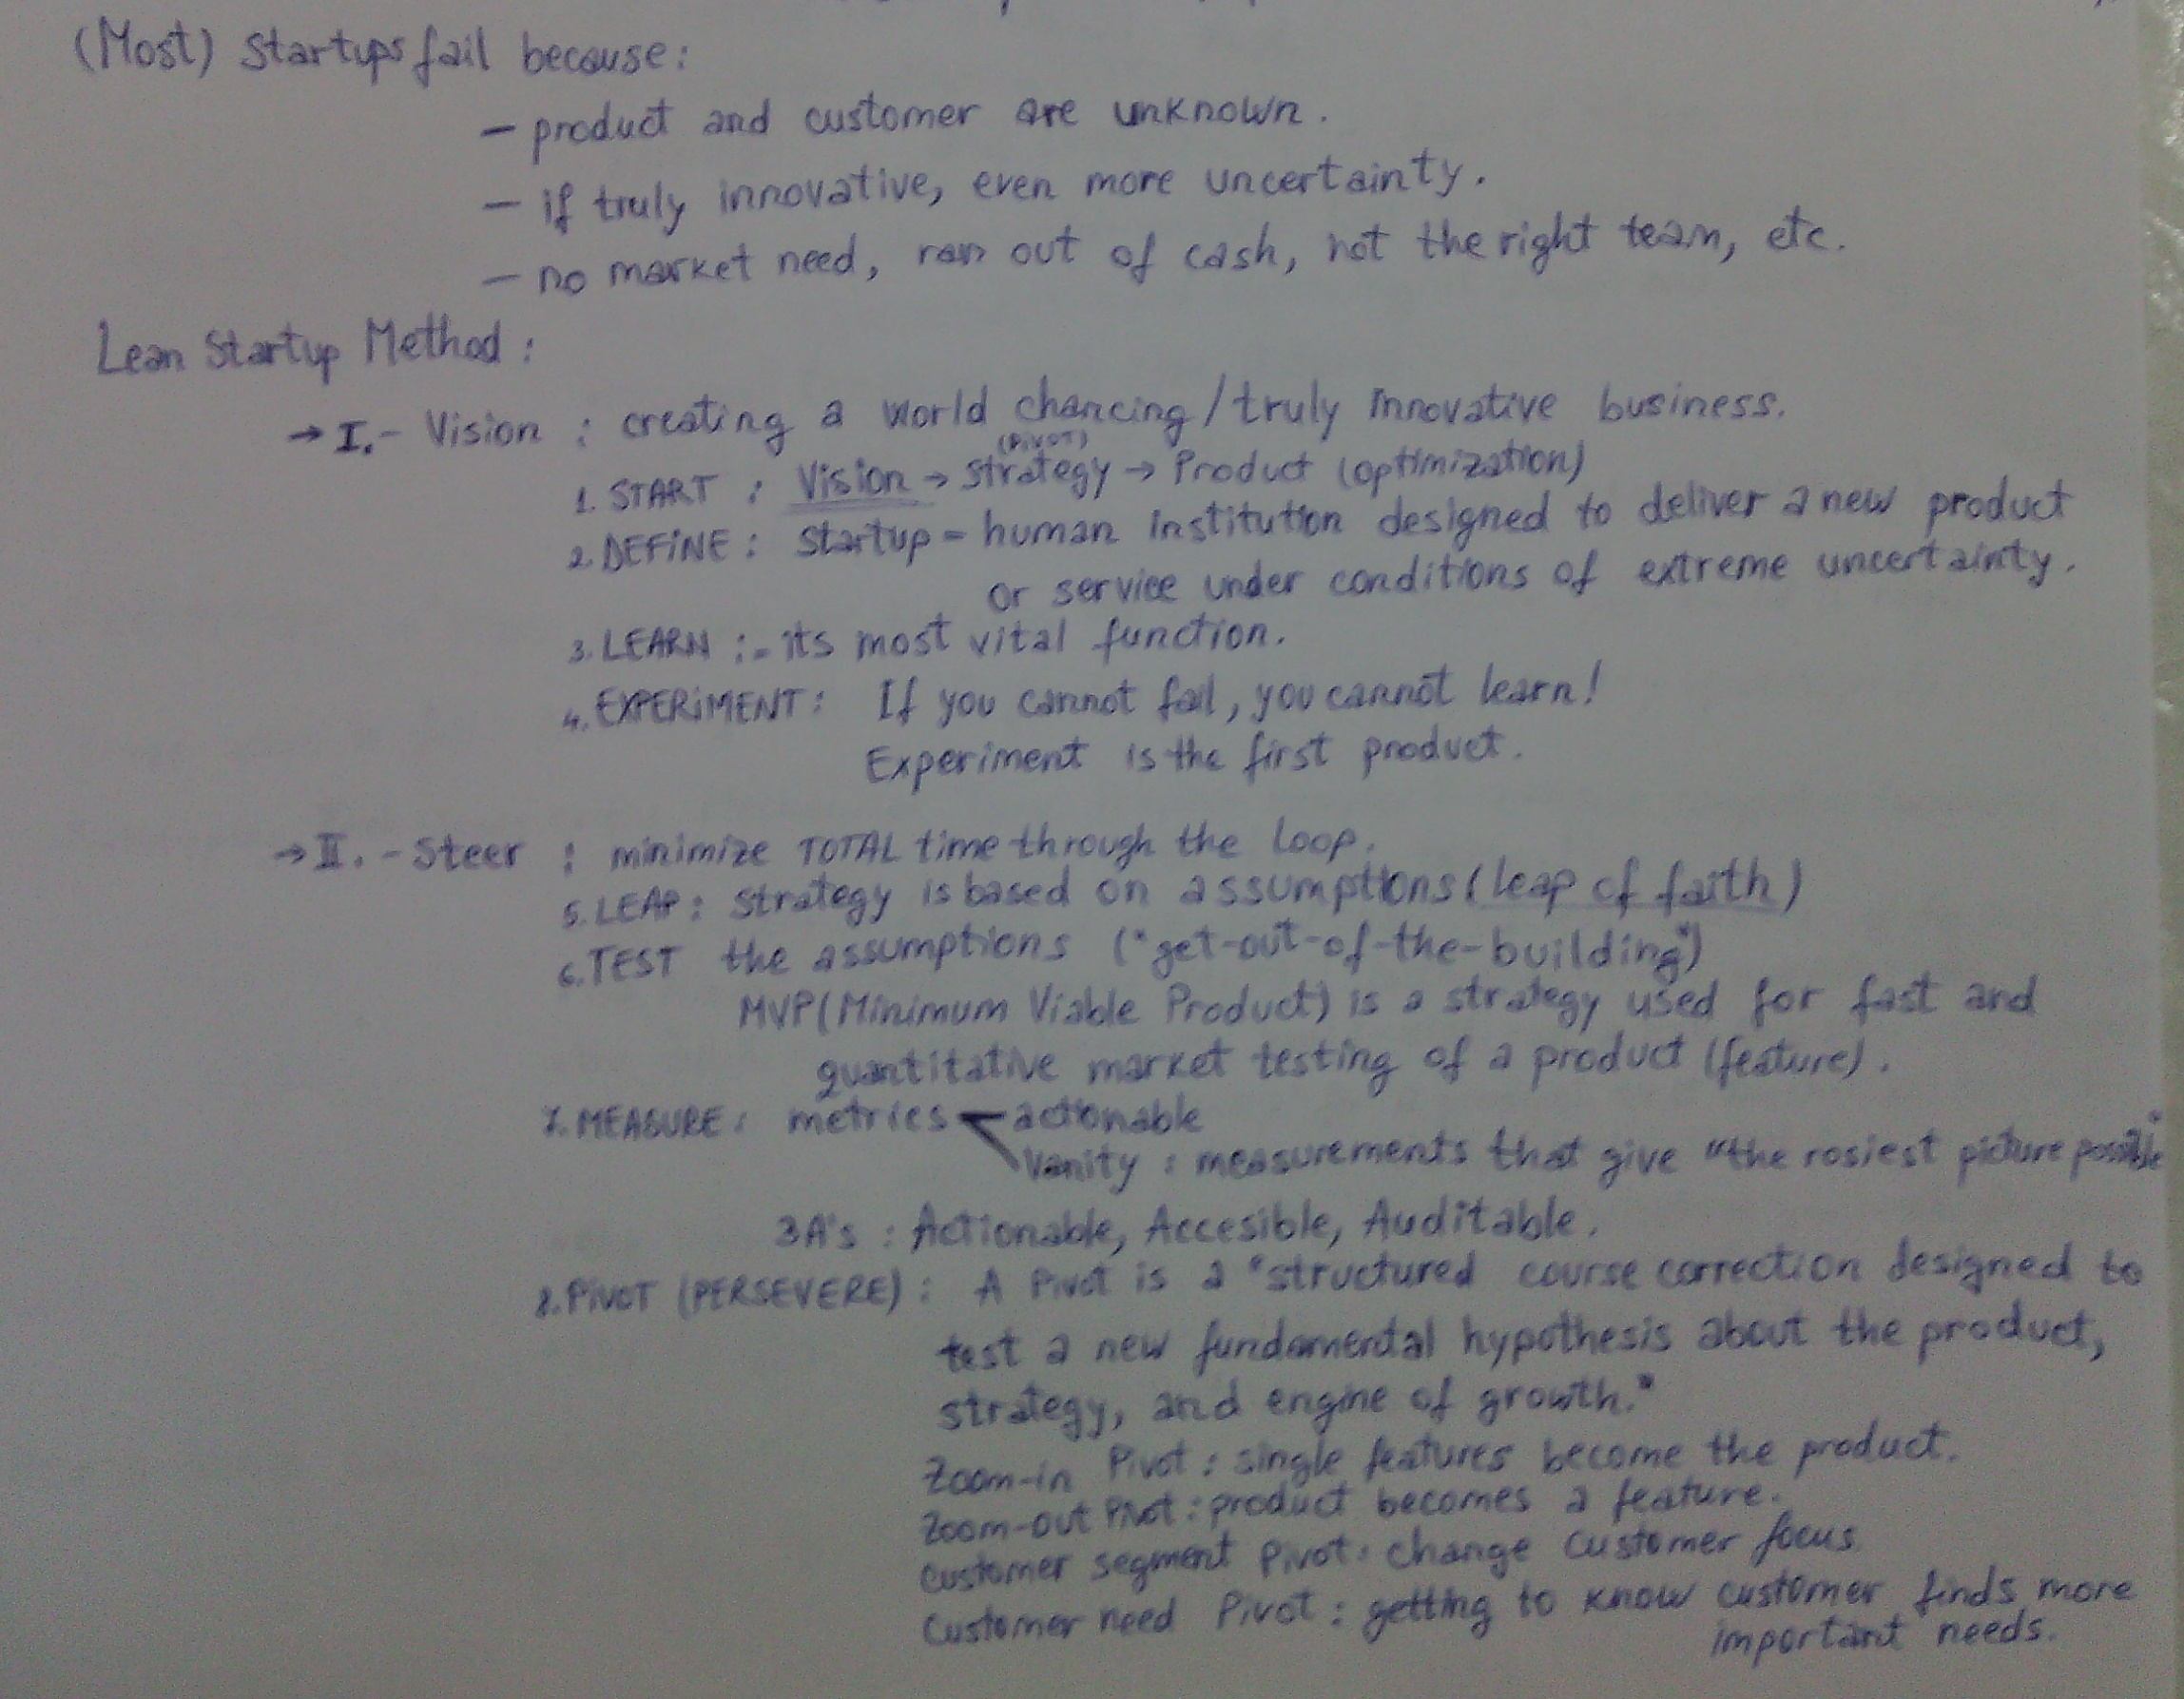 (Most) Startups fail because:
- product and customer are unknown.
- if truly innovative, even more uncertainty.
- no market need, ran out of cash, not the right team, etc.
Lean Startup Method:
→ I.- Vision : creating a world chancing/truly innovative business.
(PIVOT)
1. START : Vision → Strategy → Product (optimization)
2. DEFINE : Startup = human institution designed to deliver a new product
or service under conditions of extreme uncertainty.
3. LEARN :- its most vital function.
4. EXPERIMENT: If you cannot fail, you cannot learn!
Experiment is the first product.
→ II.- Steer : minimize TOTAL time through the loop.
5. LEAP : Strategy is based on assumptions (leap of faith)
6. TEST the assumptions ("get-out-of-the-building")
MVP (Minimum Viable Product) is a strategy used for fast and
quantitative market testing of a product (feature).
7. MEASURE : metrics actionable
Vanity : measurements that give "the rosiest picture possible"
3A's : Actionable, Accesible, Auditable.
8. PIVOT (PERSEVERE) : A Pivot is a "structured course correction designed to
test a new fundamental hypothesis about the product,
strategy, and engine of growth."
Zoom-in Pivot : single features become the product.
Zoom-out Pivot : product becomes a feature.
Customer segment Pivot : change customer focus.
Customer need Pivot : getting to know customer finds more
important needs.